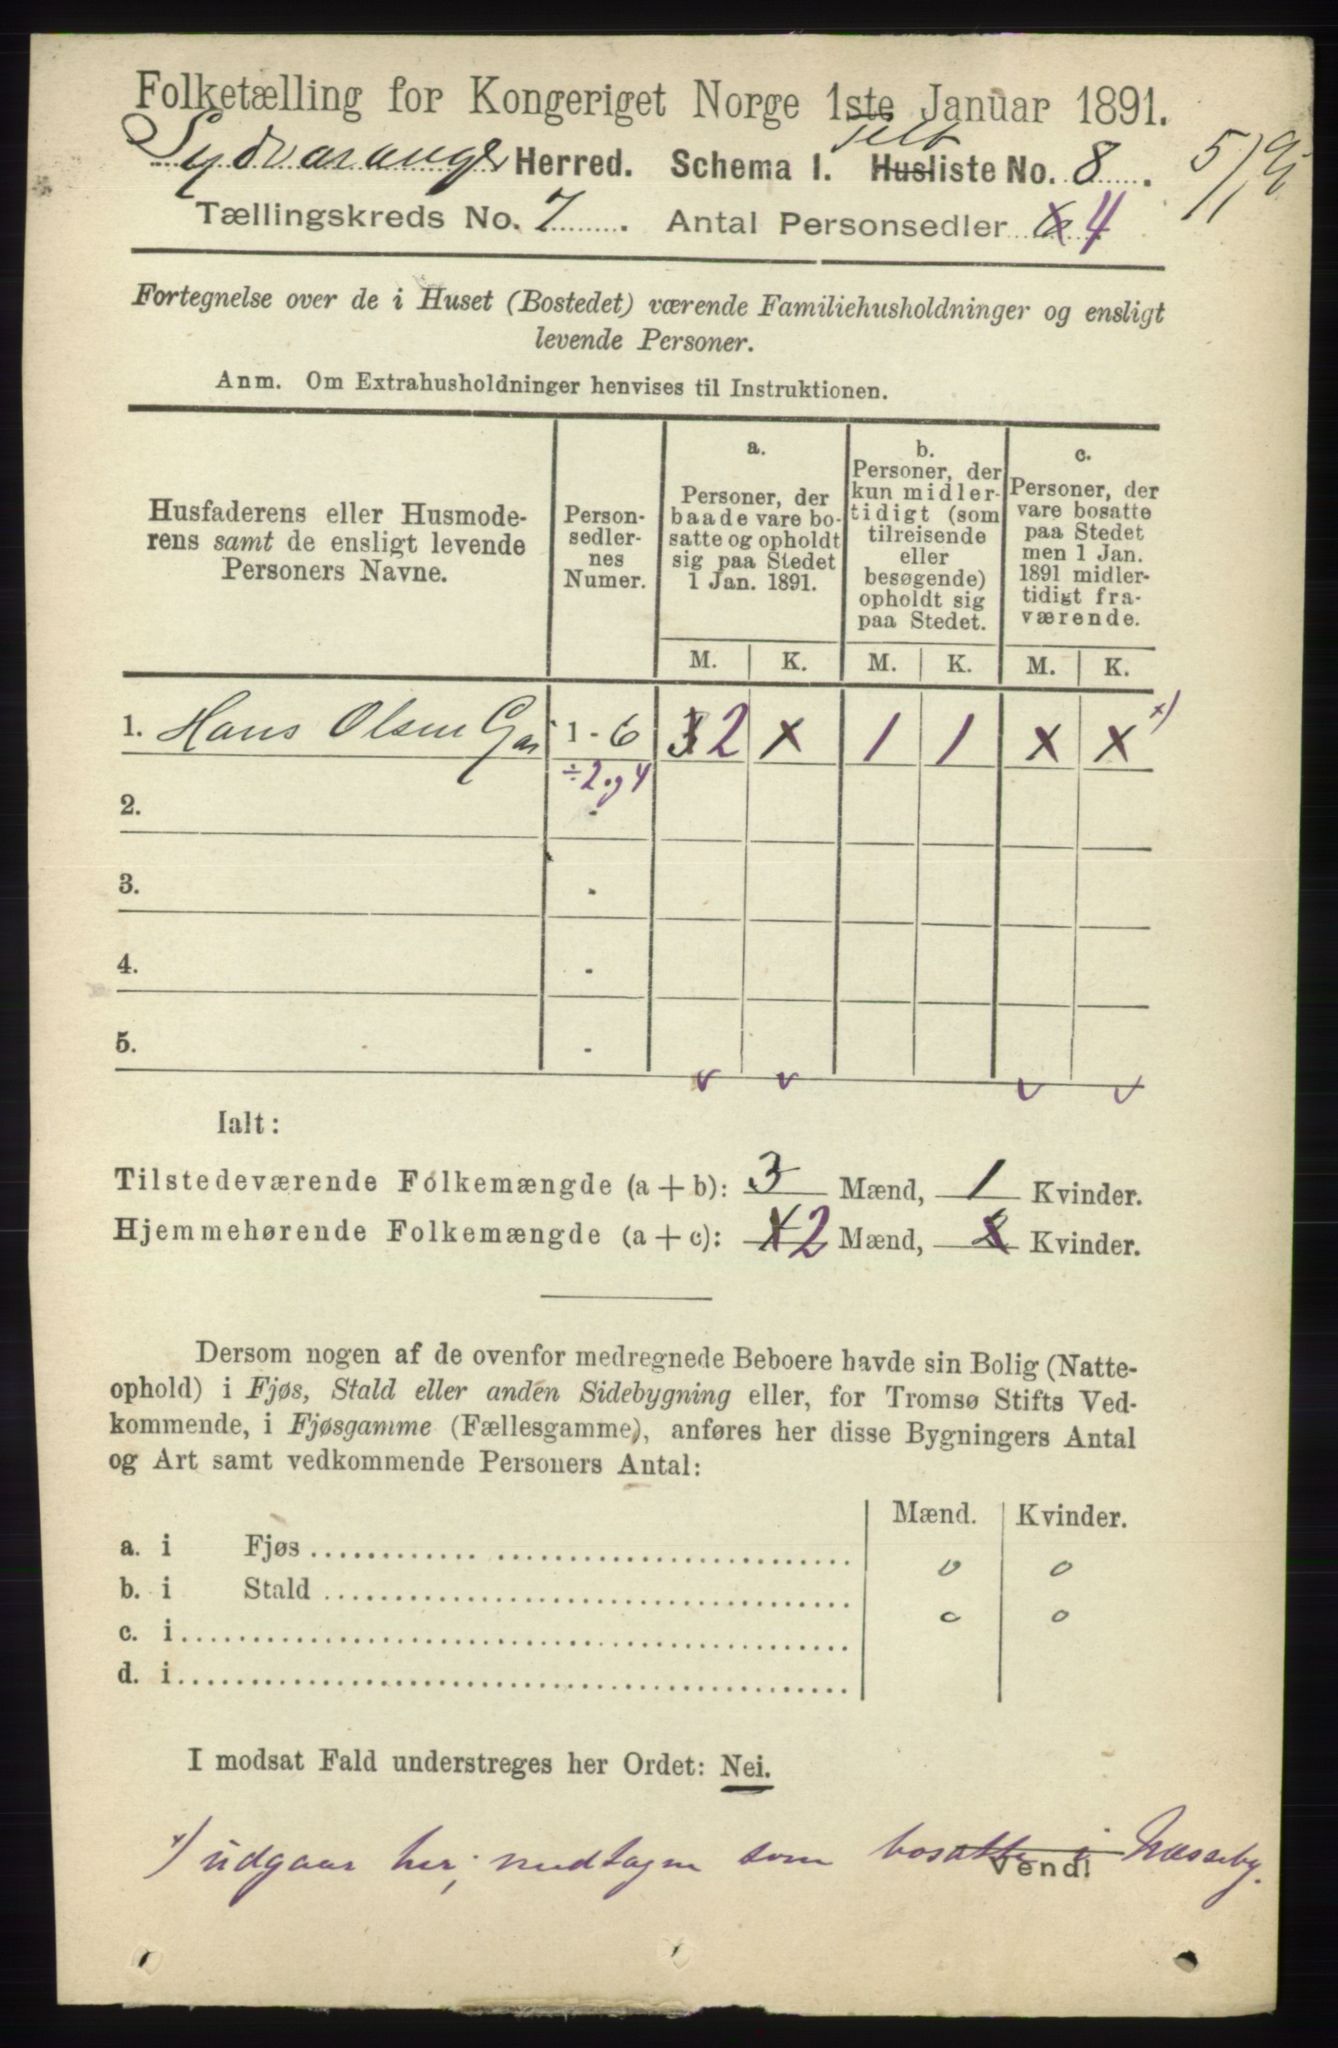 Folketælling for Kongeriget Norge 1ste Januar 1891.
Sydvaranger Herred. Schema I. Husliste No. 8.
Telt
5/1 91
Tællingskreds No. 7. Antal Personsedler 6 4
Fortegnelse over de i Huset (Bostedet) værende Familiehusholdninger og ensligt
levende Personer.
Anm. Om Extrahusholdninger henvises til Instruktionen.
Husfaderens eller Husmode-
rens samt de ensligt levende
Personers Navne.
Person-
sedler-
nes
Numer.
a.
Personer, der
baade vare bo-
satte og opholdt
sig paa Stedet
1 Jan. 1891.
b.
Personer, der
kun midler-
tidigt (som
tilreisende
eller
besøgende)
opholdt sig
paa Stedet.
c.
Personer, der
vare bosatte
paa Stedet
men 1 Jan.
1891 midler-
tidigt fra-
værende.
M. K. M. K. M. K.
1. Hans Olsen 1 - 6 3 2 x 1 1 x x x)
÷ 2 og 4
2. -
3. -
4. -
5. -
Ialt:
Tilstedeværende Folkemængde (a + b): 3 Mænd, 1 Kvinder.
Hjemmehørende Folkemængde (a + c): 2 Mænd, x Kvinder.
Dersom nogen af de ovenfor medregnede Beboere havde sin Bolig (Natte-
ophold) i Fjøs, Stald eller anden Sidebygning eller, for Tromsø Stifts Ved-
kommende, i Fjøsgamme (Fællesgamme), anføres her disse Bygningers Antal
og Art samt vedkommende Personers Antal:
Mænd. Kvinder.
a. i Fjøs 0 0
b. i Stald 0 0
c. i
d. i
I modsat Fald understreges her Ordet: Nei.
x) udgaar her; medtagen som bosatte i Næsseby.
Vend!